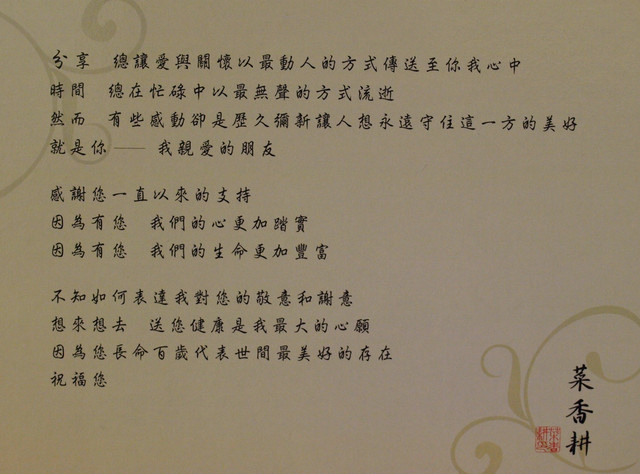 分享　總讓愛與關懷以最動人的方式傳送至你我心中
時間　總在忙碌中以最無聲的方式流逝
然而　有些感動卻是歷久彌新讓人想永遠守住這一方的美好
就是你──　我親愛的朋友
感謝您一直以來的支持
因為有您　我們的心更加踏實
因為有您　我們的生命更加豐富
不知如何表達我對您的敬意和謝意
想來想去　送您健康是我最大的心願
因為您長命百歲代表世間最美好的存在
祝福您
菜香耕